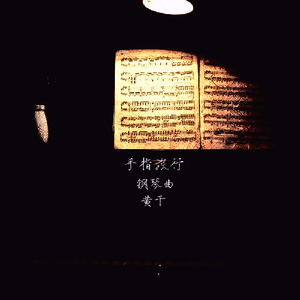 手指旅行
钢琴曲
黄千